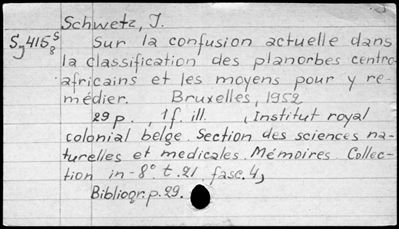 Schwetz, J.
Sur la confusion actuelle dans
la classification des planorbes centro-
africains et les moyens pour y re-
médier. Bruxelles, 1952
29 p., 1 f. ill. , Institut royal
colonial belge. Section des sciences na-
turelles et medicales. Mémoires. Collec-
tion in-8° t.21 fasc.4,
Bibliogr.p.29.